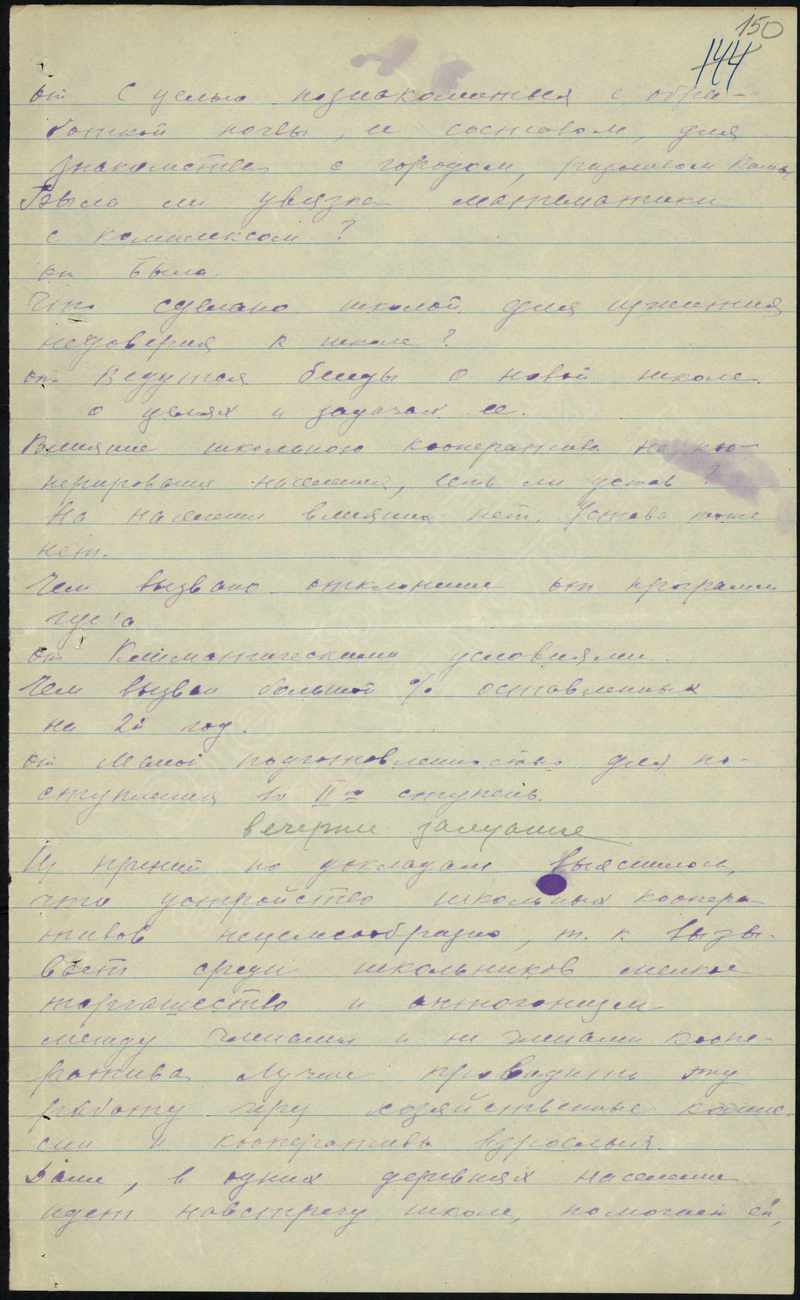 150
144
от С целью познакомиться с обра-
боткой почвы, ее составом, для
знакомства с городом, разливом Камы.
Была ли увязка математики
с комплексом?
от Была.
Что сделано школой для изжития
недоверия к школе?
от Ведутся беседы о новой школе
о целях и задачах ее.
Влияние школьного кооператива на коо-
перирование населения, есть ли устав?
На население влияния нет. Устава тоже
нет.
Чем вызвано отклонение от программ
гус'а
от Климатическими условиями.
Чем вызван большой % оставленных
на 2й год.
от Малой подготовленностью для по-
ступления во II-ю ступень.
вечернее заседание
Из прений по докладам выяснилось,
что устройство школьных коопера-
тивов нецелесообразно, т. к. вызы-
вает среди школьников мелкое
торгашество и антогонизм
между членами и не членами коопе-
ратива. Лучше проводить эту
работу чрез хозяйственные комис-
сии и кооперативы взрослых.
Далее, в одних деревнях население
идет навстречу школе, помогает ей,